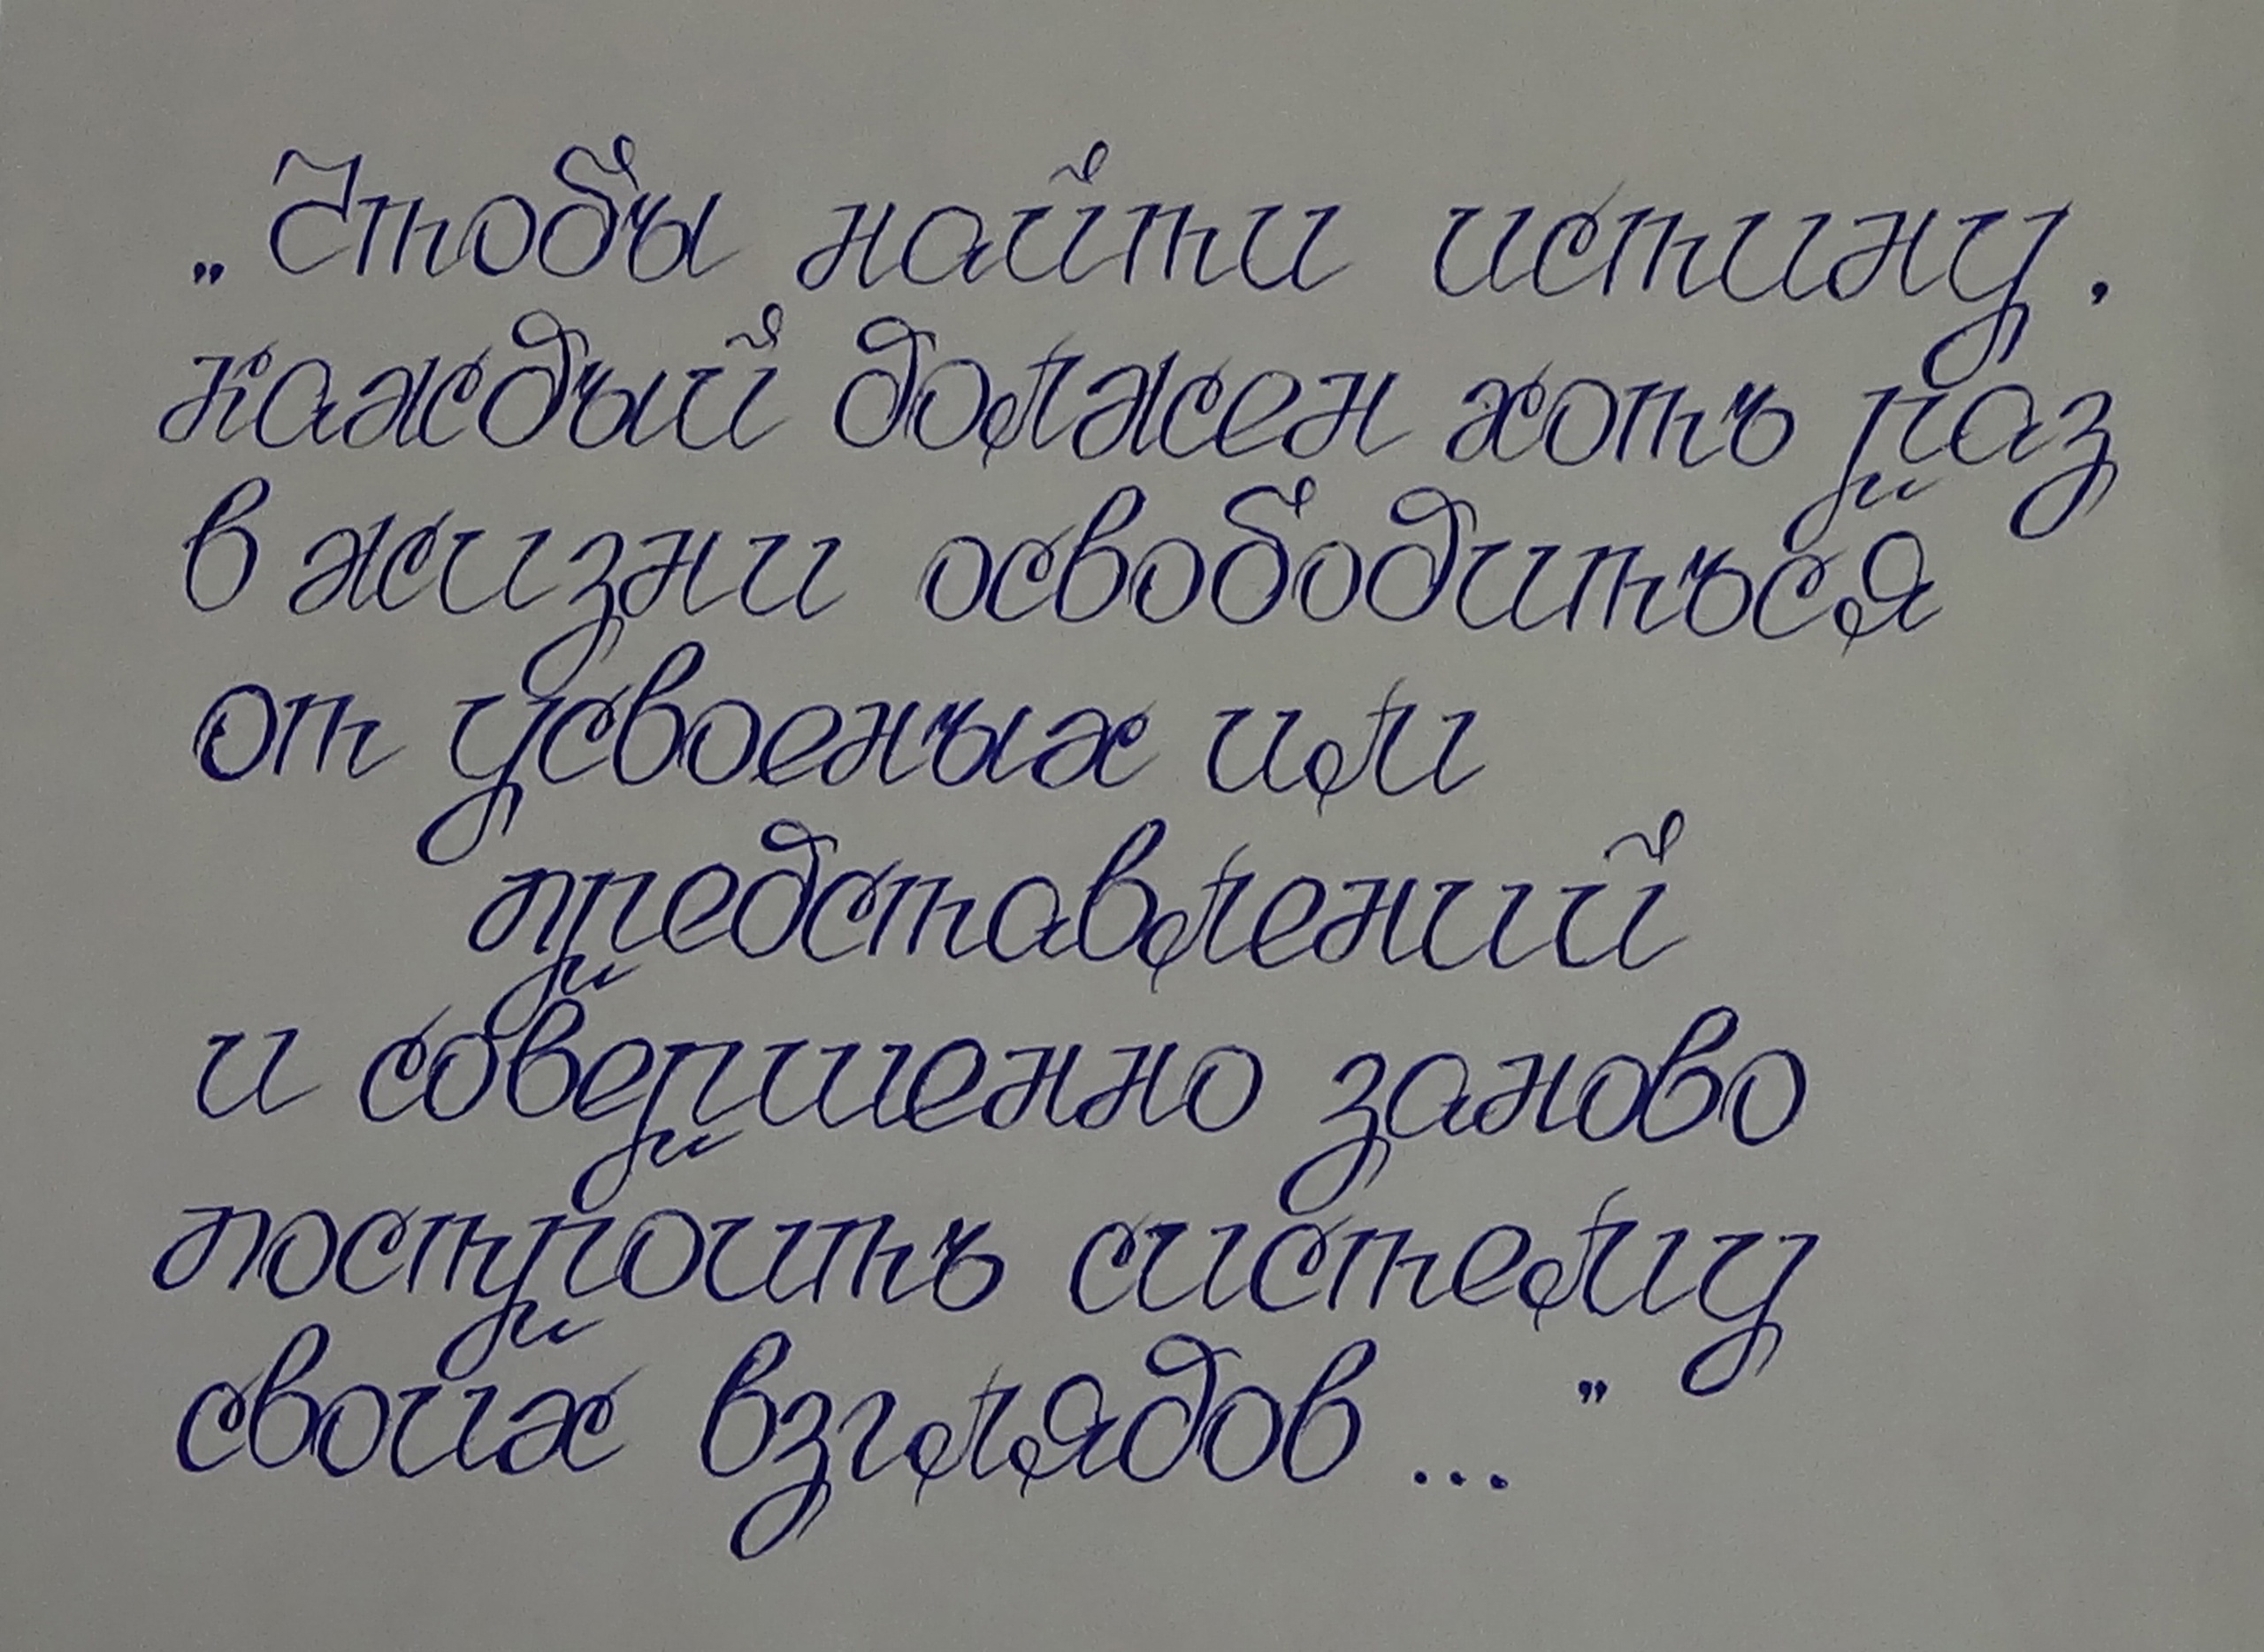 „Чтобы найти истину,
каждый должен хоть раз
в жизни освободиться
от усвоеных или
представлений
и совершенно заново
построить систему
своих взглядов..."